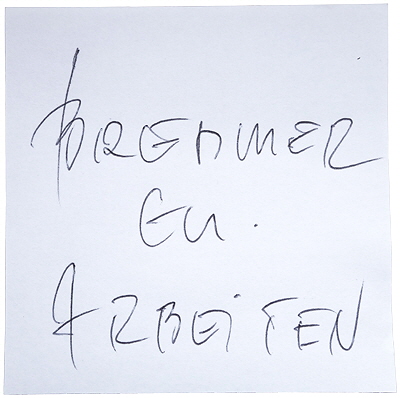 BREHMER
ARBEITEN